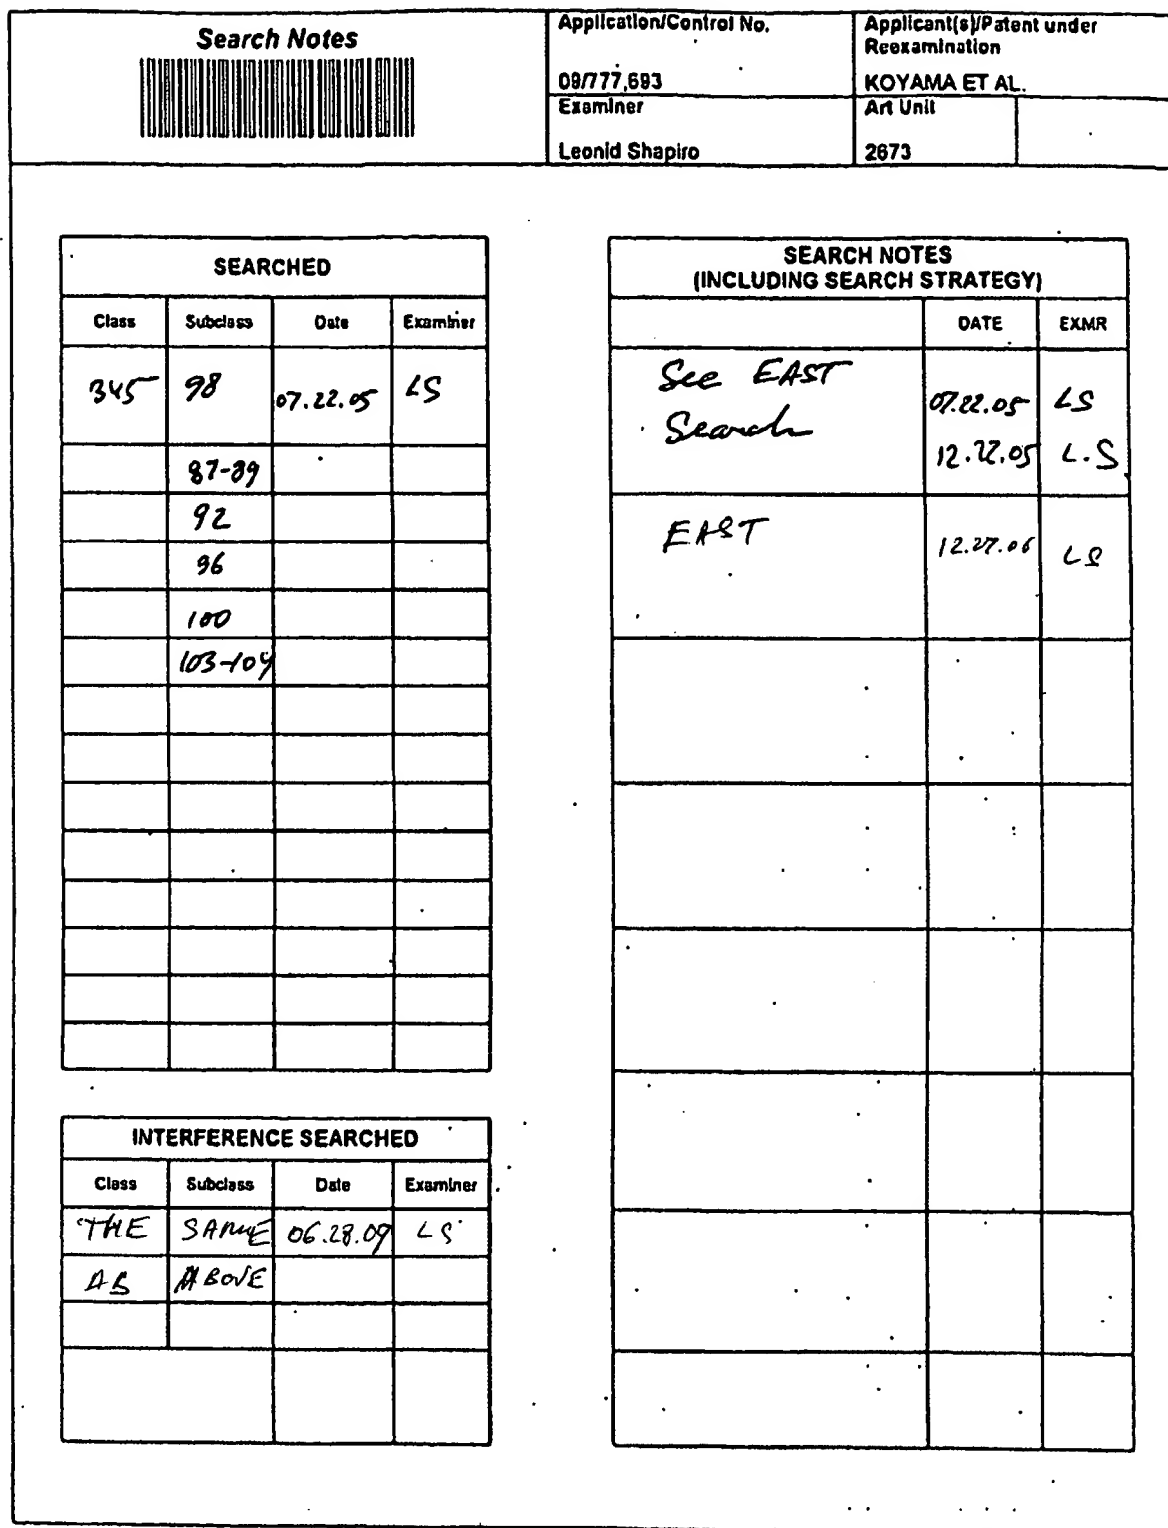 Search Notes
Application/Control No.
09/777,693
Applicant(s)/Patent under
Reexamination
KOYAMA ET AL.
Examiner
Leonid Shapiro
Art Unit
2673
SEARCHED
Class Subclass Date Examiner
345 98 07.22.05 LS
87-89
92
96
100
103-104
INTERFERENCE SEARCHED
Class Subclass Date Examiner
THE SAME LS
AS ABOVE
SEARCH NOTES
(INCLUDING SEARCH STRATEGY)
DATE EXMR
See EAST
Search
07.22.05 LS
12.22.05 L.S
EAST LS